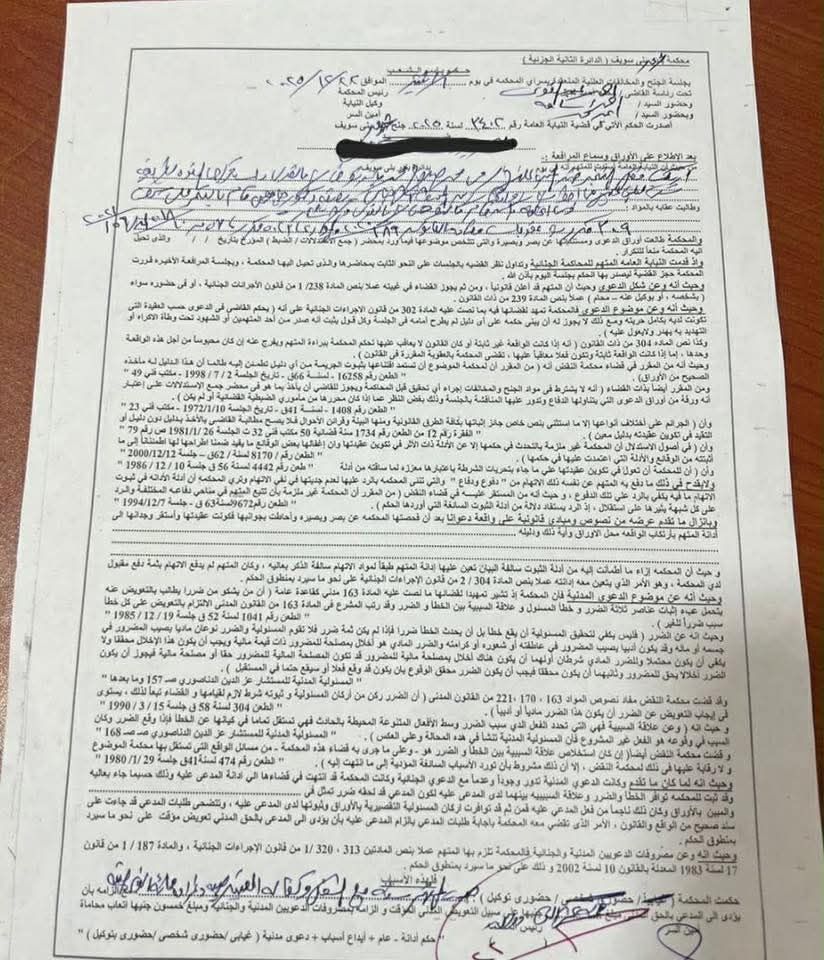 محكمة بنى سويف ( الدائرة الثانية الجزئية )
بجلسة الجنح والمخالفات العلنية المنعقدة بسراى المحكمه في يوم الموافق ٢٠٢٥/١٢/٢٢
تحت رئاسة القاضي / رئيس المحكمة
وحضور السيد / وكيل النيابة
وبحضور السيد / أمين السر
أصدرت الحكم الآتي في قضية النيابة العامة رقم ٣٤٠٢ لسنة ٢٠٢٥ جنح بنى سويف
بعد الاطلاع على الأوراق وسماع المرافعة :-
وطالبت عقابه بالمواد :
والمحكمة طالعت أوراق الدعوى ومستنداتها عن بصر وبصيرة والتي تتلخص موضوعها فيما ورد بمحضر ( جمع الاستدلالات / الضبط ) المؤرخ بتاريخ / / والذى تحيل
اليه المحكمة منعاً للتكرار .
وإذ قدمت النيابة العامه المتهم للمحاكمة الجنائية وتداول نظر القضيه بالجلسات على النحو الثابت بمحاضرها والذى تحيل اليها المحكمة ، وبجلسة المرافعة الأخيره قررت
المحكمة حجز القضية ليصدر بها الحكم بجلسة اليوم بإذن الله .
وحيث أنه عن شكل الدعوي وحيث أن المتهم قد أعلن قانونياً ، ومن ثم يجوز القضاء في غيبته عملا بنص المادة 238/ 1 من قانون الأجراءات الجنائية ، أو فى حضوره سواء
( بشخصه ، أو بوكيل عنه – محام ) عملاً بنص المادة 239 من ذات القانون .
وحيث أنه وعن موضوع الدعوى فالمحكمة تمهد لقضائها فيه بما نصت عليه المادة 302 من قانون الإجراءات الجنائية على أنه ( يحكم القاضى فى الدعوى حسب العقيدة التى
تكونت لديه بكامل حريته ومع ذلك لا يجوز له أن يبنى حكمه على أى دليل لم يطرح أمامه فى الجلسة وكل قول يثبت أنه صدر من أحد المتهمين أو الشهود تحت وطأة الاكراه أو
التهديد به يهدر ولايعول عليه ) .
وكذا نص المادة 304 من ذات القانون ( أنه إذا كانت الواقعة غير ثابتة أو كان القانون لا يعاقب عليها تحكم المحكمة ببراءة المتهم ويفرج عنه إن كان محبوساً من أجل هذه الواقعة
وحدها ، إما إذا كانت الواقعة ثابتة وتكون فعلاً معاقباً عليها ، تقضى المحكمة بالعقوبة المقررة فى القانون ) .
وحيث أنه من المقرر فى قضاء محكمة النقض " أنه من المقرر أن لمحكمة الموضوع أن تستمد اقتناعها بثبوت الجريمة من أي دليل تطمئن إليه طالما أن هذا الدليل له مأخذه
الصحيح من الأوراق) . " الطعن رقم 16258 - لسنة 66ق - تاريخ الجلسة 2 / 7 / 1998 - مكتب فني 49 "
ومن المقرر أيضاً بذات القضاء ( أنه لا يشترط في مواد الجنح والمخالفات إجراء أي تحقيق قبل المحاكمة ويجوز للقاضي أن يأخذ بما هو فى محضر جمع الاستدلالات على إعتبار
أنه ورقة من أوراق الدعوى التى يتناولها الدفاع وتدور عليها المناقشة بالجلسة وذلك بغض النظر عما إذا كان محررها من مأموري الضبطية القضائية أو لم يكن ) .
" الطعن رقم 1408 - لسنة 41ق - تاريخ الجلسة 1972/1/10 - مكتب فني 23 "
وأن ( الجرائم على أختلاف أنواعها إلا ما استثنى بنص خاص جائز إثباتها بكافة الطرق القانونية ومنها البينة وقرائن الأحوال فلا يصح مطالبة القاضى بالأخذ بدليل دون دليل أو
التقيد فى تكوين عقيدته بدليل معين ) . " الفقرة رقم 12 من الطعن رقم 1734 لسنة قضائية 50 مكتب فنى 32 ت الجلسة 1981/1/26 ص رقم 79 "
وأن ( فى أصول الاستدلال أن المحكمة غير ملزمة بالتحدث في حكمها إلا عن الأدلة ذات الأثر في تكوين عقيدتها وإن إغفالها بعض الوقائع ما يفيد ضمنا اطراحها لها اطمئناناً إلى ما
أثبتته من الوقائع والأدلة التي اعتمدت عليها فى حكمها ) . " الطعن رقم / 8170 لسنة / 62ق – جلسة 2000/12/12 "
وأن ( للمحكمة أن تعول في تكوين عقيدتها علي ما جاء بتحريات الشرطة باعتبارها معززه لما ساقته من أدلة " الطعن رقم 4442 لسنة 56 ق جلسة 10 / 12 / 1986 "
ولايقدح فى ذلك ما دفع به المتهم عن نفسه ذلك الاتهام من " دفوع ودفاع " والتي تنتنى المحكمه بالرد عليها لعدم جديتها في نفى الاتهام وترى المحكمه أن أدلة الأدانه في ثبوت
الاتهام ما فيه يكفى بالرد علي تلك الدفوع ، وحيث أنه من المستقر عليـــه فى قضاء النقض ( من المقرر أن المحكمة غير ملزمة بأن تتبع المتهم في مناحي دفاعه المختلفة والرد
على كل شبهة يثيرها على استقلال ، إذ الرد يستفاد دلالة من أدلة الثبوت السائغة التي أوردها الحكم ) . " الطعن رقم9672لسنة63 ق - جلسة 1994/12/7 "
وبانزال ما تقدم عرضه من نصوص ومبادئ قانونية على واقعة دعوانا بعد أن فحصتها المحكمه عن بصر وبصيره وأحاطت بجوانبها فكونت عقيدتها واستقر وجدانها الى
أدانة المتهم بأرتكاب الواقعه محل الاوراق وآية ذلك ودليله
و حيث أن المحكمه إزاء ما أطمأنت إليه من أدلة الثبوت سالفة البيان تعين عليها إدانة المتهم طبقاً لمواد الاتهام سالفة الذكر بعاليه ، وكان المتهم لم يدفع الاتهام بثمة دفع مقبول
لدي المحكمة ، وهو الأمر الذي يتعين معه إدانته عملا بنص المادة 304 / 2 من قانون الإجراءات الجنائية علي نحو ما سيرد بمنطوق الحكم .
وحيث أنه عن موضوع الدعوي المدنية فأن المحكمة إذ تشير تمهيدا لقضائها ما نصت عليه المادة 163 مدني كقاعدة عامة ( أن من يشكو من ضررا يطالب بالتعويض عنه
يتحمل عبء إثبات عناصر ثلاثة الضرر و خطأ المسئول و علاقة السببية بين الخطا و الضرر وقد رتب المشرع فى المادة 163 من القانون المدنى الالتزام بالتعويض علي كل خطأ
سبب ضرراً للغير ) . " الطعن رقم 1041 لسنة 52 ق جلسة 19 / 12 / 1985 "
وحيث انه عن الضرر ( فليس يكفي لتحقيق المسئولية أن يقع خطأ بل أن يحدث الخطأ ضررا فإذا لم يكن ثمة ضرر فلا تقوم المسئولية والضرر نوعان ماديا يصيب المضرور فى
جسمه أو ماله وقد يكون أدبيا يصيب المضرور في عاطفته أو شعوره أو كرامته والضرر المادي هو أخلال بمصلحة للمضرور ذات قيمة مالية ويجب أن يكون هذا الإخلال محققا ولا
يكفى أن يكون محتملا وللضرر المادي شرطان أولهما أن يكون هناك أخلال بمصلحة مالية للمضرور قد تكون المصلحة المالية للمضرور حقا أو مصلحة مالية فيجوز أن يكون
الضرر اخلالا بحق للمضرور وثانيهما أن يكون محققا فيجب أن يكون الضرر محقق الوقوع بان يكون قد وقع فعلا أو سيقع حتما في المستقبل ) .
" المسئولية المدنية للمستشار عز الدين الدناصورى ص 157 وما بعدها "
وقد قضت محكمة النقض مفاد نصوص المواد 163 ، 170 ،221 من القانون المدني ( أن الضرر ركن من أركان المسئولية و ثبوته شرط لازم لقيامها و القضاء تبعاً لذلك ، يستوى
في إيجاب التعويض عن الضرر أن يكون هذا الضرر مادياً أو أدبياً ) . " الطعن رقم 304 لسنة 58 ق جلسة 15 / 3 / 1990 "
و حيث إنه ( وعن علاقة السببية فهي التي تحدد الفعل الذي سبب الضرر وسط الأفعال المتنوعة المحيطة بالحادث فهي تستقل تماما في كيانها عن الخطأ فإذا وقع الضرر وكان
السبب في وقوعه هو الفعل غير المشروع فأن المسئولية المدنية تنشأ في هذه المحالة وعلي العكس ) . " المسئولية المدنية للمستشار عز الدين الدناصورى صـ صـ 168 "
و قضت محكمة النقض أيضا ( إن كان استخلاص علاقة السببية بين الخطأ و الضرر هو - وعلى ما جرى به قضاء هذه المحكمة - من مسائل الواقع التي تستقل بها محكمة الموضوع
و لا رقابة عليها في ذلك لمحكمة النقض ، إلا أن ذلك مشروط بأن تورد الأسباب السائغة المؤدية إلى ما انتهت إليه ) . " الطعن رقم 474 لسنة 41ق جلسة 29 / 1 / 1980 "
وحيث أنه لما كان ما تقدم وكانت الدعوي المدنية تدور وجوداً وعدما مع الدعوي الجنائية وكانت المحكمة قد انتهت في قضاءها الي ادانة المدعي عليه وذلك حسبما جاء بعاليه
وقد ثبت للمحكمه توافر الخطأ والضرر وعلاقة السببيه بينهما لدى المدعى عليه لكون المدعى قد لحقه ضرر تمثل فى
والمبين بالأوراق وكان ذلك ناجماً من فعل المدعي عليه فمن ثم قد توافرت اركان المسئولية التقصيرية بالأوراق وثبوتها لدى المدعى عليه ، وتتضحى طلبات المدعي قد جاءت على
سند صحيح من الواقع والقانون ، الأمر الذى تقضي معه المحكمة بأجابة طلبات المدعي بالزام المدعى عليه بأن يؤدى الى المدعى بالحق المدنى تعويض مؤقت على نحو ما سيرد
بمنطوق الحكم .
وحيث أنه وعن مصروفات الدعويين المدنية والجنائية فالمحكمة تلزم بها المتهم عملا بنص المادتين 313 ، 320/ 1 من قانون الإجراءات الجنائية ، والمادة 187 / 1 من قانون
17 لسنة 1983 المعدلة بالقانون 10 لسنة 2002 و ذلك على نحو ما سيرد بمنطوق الحكم .
فلهذه الأسباب
حكمت المحكمة ( غيابيا / حضورى شخصى / حضورى توكيل ) الزامه بأن
يؤدى الى المدعى بالحق المدنى مبلغ على سبيل التعويض المدنى المؤقت و الزامه بمصروفات الدعويين المدنية والجنائية ومبلغ خمسون جنيها اتعاب محاماة
أمين السر رئيس
" حكم أدانة – عام + أيداع أسباب + دعوى مدنية ( غيابى /حضورى شخصى /حضورى بتوكيل ) "